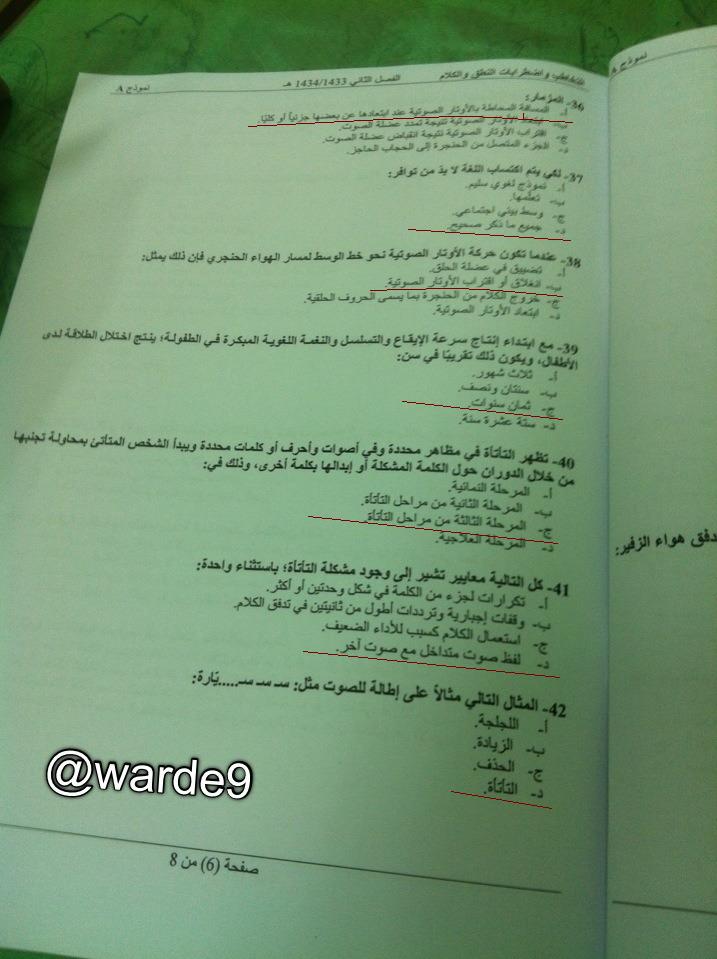 التخاطب واضطرابات النطق والكلام الفصل الثاني 1434/1433 هـ نموذج A
36- المزمار:
أ- المسافة المحاطة بالأوتار الصوتية عند ابتعادها عن بعضها جزئياً أو كليًا.
ب- ابتعاد الأوتار الصوتية نتيجة تمدد عضلة الصوت.
ج- اقتراب الأوتار الصوتية نتيجة انقباض عضلة الصوت.
د- الجزء المتصل من الحنجرة إلى الحجاب الحاجز.
37- لكي يتم اكتساب اللغة لا بد من توافر:
أ- نموذج لغوي سليم.
ب- تعلمها.
ج- وسط بيئي اجتماعي.
د- جميع ما ذكر صحيح.
38- عندما تكون حركة الأوتار الصوتية نحو خط الوسط لمسار الهواء الحنجري فإن ذلك يمثل:
أ- تضييق في عضلة الحلق.
ب- انغلاق أو اقتراب الأوتار الصوتية.
ج- خروج الكلام من الحنجرة بما يسمى الحروف الحلقية.
د- ابتعاد الأوتار الصوتية.
39- مع ابتداء إنتاج سرعة الإيقاع والتسلسل والنغمة اللغوية المبكرة في الطفولة؛ ينتج اختلال الطلاقة لدى
الأطفال، ويكون ذلك تقريبًا في سن:
أ- ثلاث شهور.
ب- سنتان ونصف.
ج- ثمان سنوات.
د- ستة عشرة سنة.
40- تظهر التأتأة في مظاهر محددة وفي أصوات وأحرف أو كلمات محددة ويبدأ الشخص المتأتئ بمحاولة تجنبها
من خلال الدوران حول الكلمة المشكلة أو إبدالها بكلمة أخرى، وذلك في:
أ- المرحلة النمائية.
ب- المرحلة الثانية من مراحل التأتأة.
ج- المرحلة الثالثة من مراحل التأتأة.
د- المرحلة العلاجية.
41- كل التالية معايير تشير إلى وجود مشكلة التأتأة؛ باستثناء واحدة:
أ- تكرارات لجزء من الكلمة في شكل وحدتين أو أكثر.
ب- وقفات إجبارية وترددات أطول من ثانيتين في تدفق الكلام.
ج- استعمال الكلام كسبب للأداء الضعيف.
د- لفظ صوت متداخل مع صوت آخر.
42- المثال التالي مثالاً على إطالة للصوت مثل: سـ سـ سـ.....يّارة:
أ- اللجلجة.
ب- الزيادة.
ج- الحذف.
د- التأتأة.
@warde9
صفحة (6) من 8
نموذج A
دفق هواء الزفير: